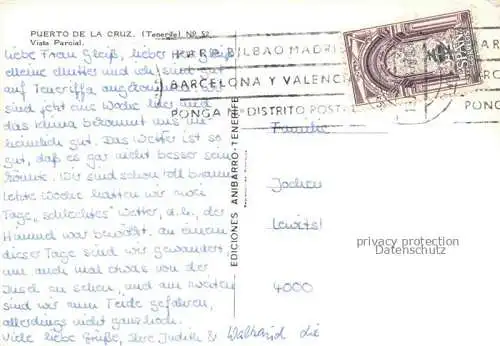 PUERTO DE LA CRUZ. (Tenerife) Nº 52
Vista Parcial.
liebe Frau Gleiß, lieber Herr Gleiß
Meine Mutter und ich sind gut
auf Teneriffa angekommen. Wir
sind jetzt eine Woche hier und
das Klima bekommt uns
heimlich gut. Das Wetter ist so
gut, daß es gar nicht besser sein
könnte. Wir sind schon toll braun
letzte Woche hatten wir zwei
Tage „schlechtes" Wetter, d.h. der
Himmel war bewölkt. An einem
dieser Tage sind wir gewandert
um auch mal etwas von der
Insel zu sehen, und am zweiten
sind wir zum Teide gefahren,
allerdings nicht ganz hoch.
Viele liebe Grüße, Ihre Judith &
EDICIONES ANIBARRO-TENERIFE
PARA BILBAO MADRID
BARCELONA Y VALENCIA
PONGA Nº DISTRITO POSTAL
PONG
ESPAÑA
Familie
Jochen
4000
privacy protection
Datenschutz